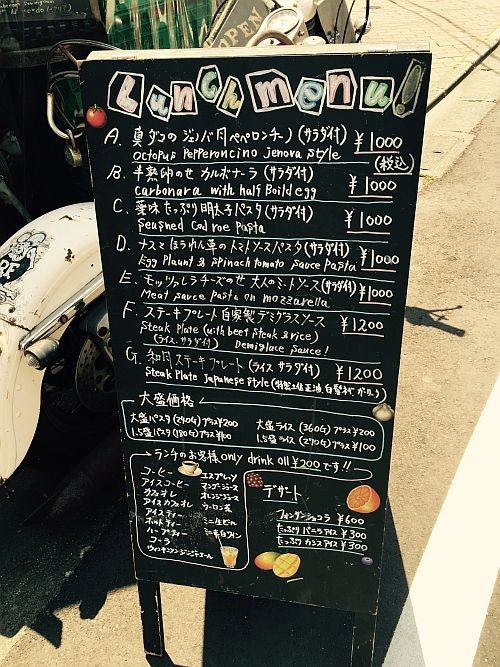 OPEN
Lunch menu!
A. 真ダコのジェノバ風ペペロンチーノ (サラダ付) ¥1000
octopus pepperoncino jenova style
(税込)
B. 半熟卵のせカルボナーラ (サラダ付) ¥1000
carbonara with half Boild egg
C. 薬味たっぷり明太子パスタ (サラダ付) ¥1000
seasned cod roe pasta
D. ナスとほうれん草のトマトソースパスタ (サラダ付) ¥1000
Egg plaunt & spinach tomato sauce pasta
E. モッツァレラチーズのせ 大人のミートソース (サラダ付) ¥1000
Meat sauce pasta on mozzarella
F. ステーキプレート 自家製デミグラスソース ¥1200
steak Plate (with beef steak & rice)
(ライス、サラダ付) Demiglace sauce!
G. 和風ステーキプレート (ライス サラダ付) ¥1200
steak plate Japanese style
大盛価格
大盛パスタ (240g) プラス¥200 大盛ライス (360g) プラス¥200
1.5盛パスタ (180g) プラス¥100 1.5盛ライス (270g) プラス¥100
ランチのお客様 only drink all ¥200です!!
コーヒー エスプレッソ
アイスコーヒー マンゴージュース
カフェオレ オレンジジュース
アイスカフェオレ ウーロン茶
アイスティー
ホットティー ミニ生ビール
ハーブティー ミニ赤白ワイン
コーラ
ウィルキンソンジンジャエール
デザート
フォンダンショコラ ¥600
たっぷりバニラアイス ¥300
たっぷりカシスアイス ¥300